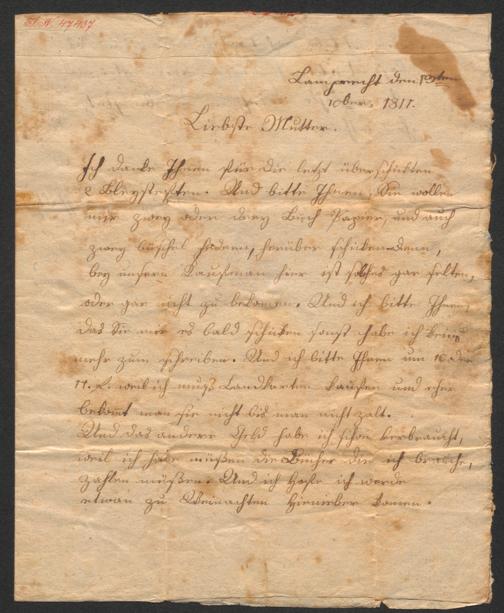 I. N. 47437
Lamprecht den 13ten
10ber. 1811.
Liebste Mutter.
Ich danke Ihnen für die letzt überschikten
2 Bleystefften. Und bitte Ihnen, Sie wollen
mir zwey oder drey Buch Papier, und auch
zwey buschel federn, herüber schiken denn,
bey unsern Kaufman hier ist solches gar selten,
oder gar nicht zu bekomen. Und ich bitte Ihnen,
das Sie mir es bald schiken sonst habe ich keine
mehr zum schreiben. Und ich bitte Ihnen um 10 oder
11. f. weil ich muß Landkarten kaufen und eher
bekomt man sie nicht bis man nicht zalt.
Und das andere Geld habe ich schon verbraucht,
weil ich habe müßen die Bücher die ich brauche,
zahlen müßen. Und ich hoffe ich werde
etwan zu Weinachten hinieber komen.